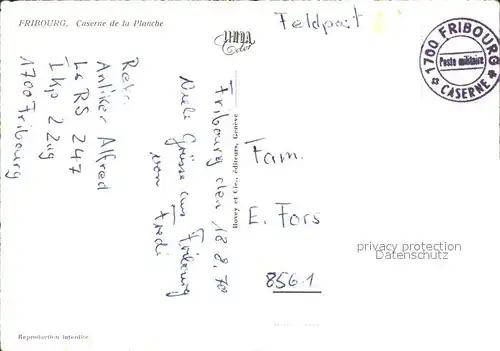 FRIBOURG, Caserne de la Planche
Feldpost
1700 FRIBOURG
Poste militaire
CASERNE
Rekr.
Anliker Alfred
La RS 247
I kp 2 Zug
1700 Fribourg
Fribourg den 18.8.70
Viele Grüsse aus Fribourg
von Fredi
Bovey et Cie., éditeurs, Genève
Fam.
E. Fors
8561
privacy protection
Datenschutz
Reproduction interdite